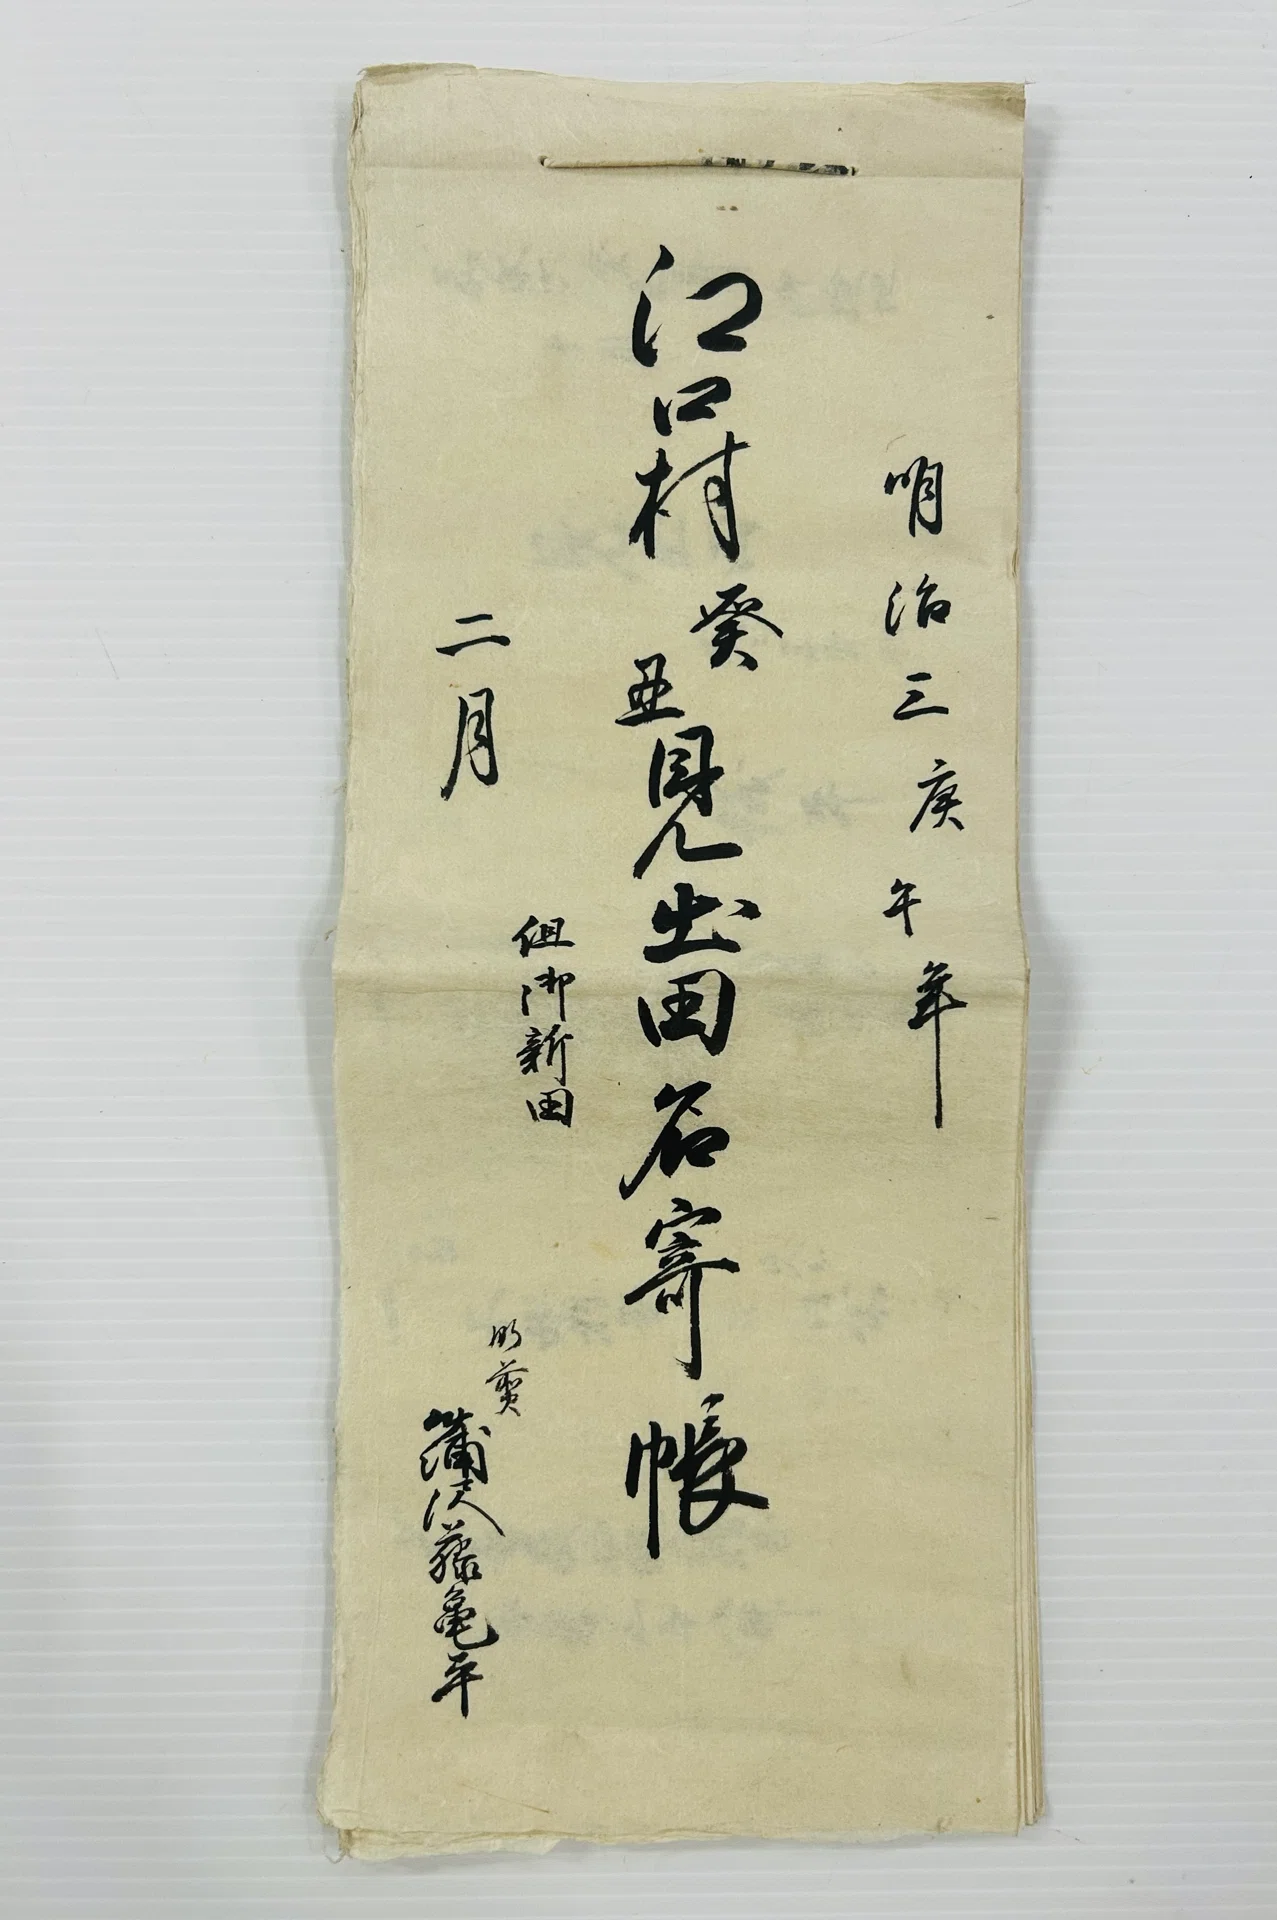 明治三庚午年
江口村癸丑見出田名寄帳
二月
組御新田
蒲沢藤亀平